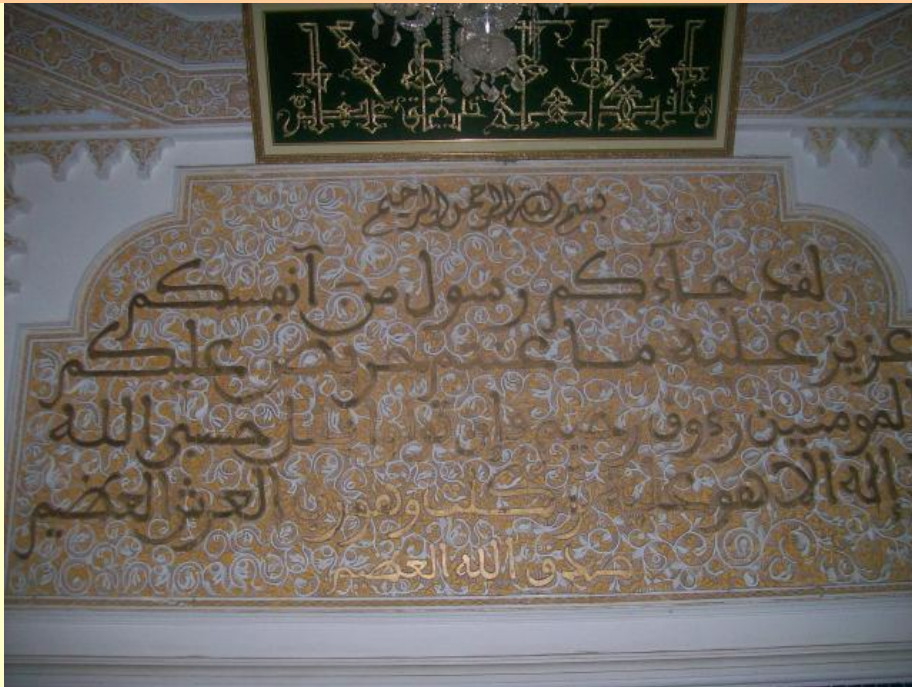 بسم الله الرحمن الرحيم
لقد جاءكم رسول من أنفسكم
عزيز عليه ما عنتم حريص عليكم
المومنين رءوف رحيم فإن تولوا فقل حسبي الله
إله إلا هو عليه توكلت وهو رب العرش العظيم
صدق الله العظيم